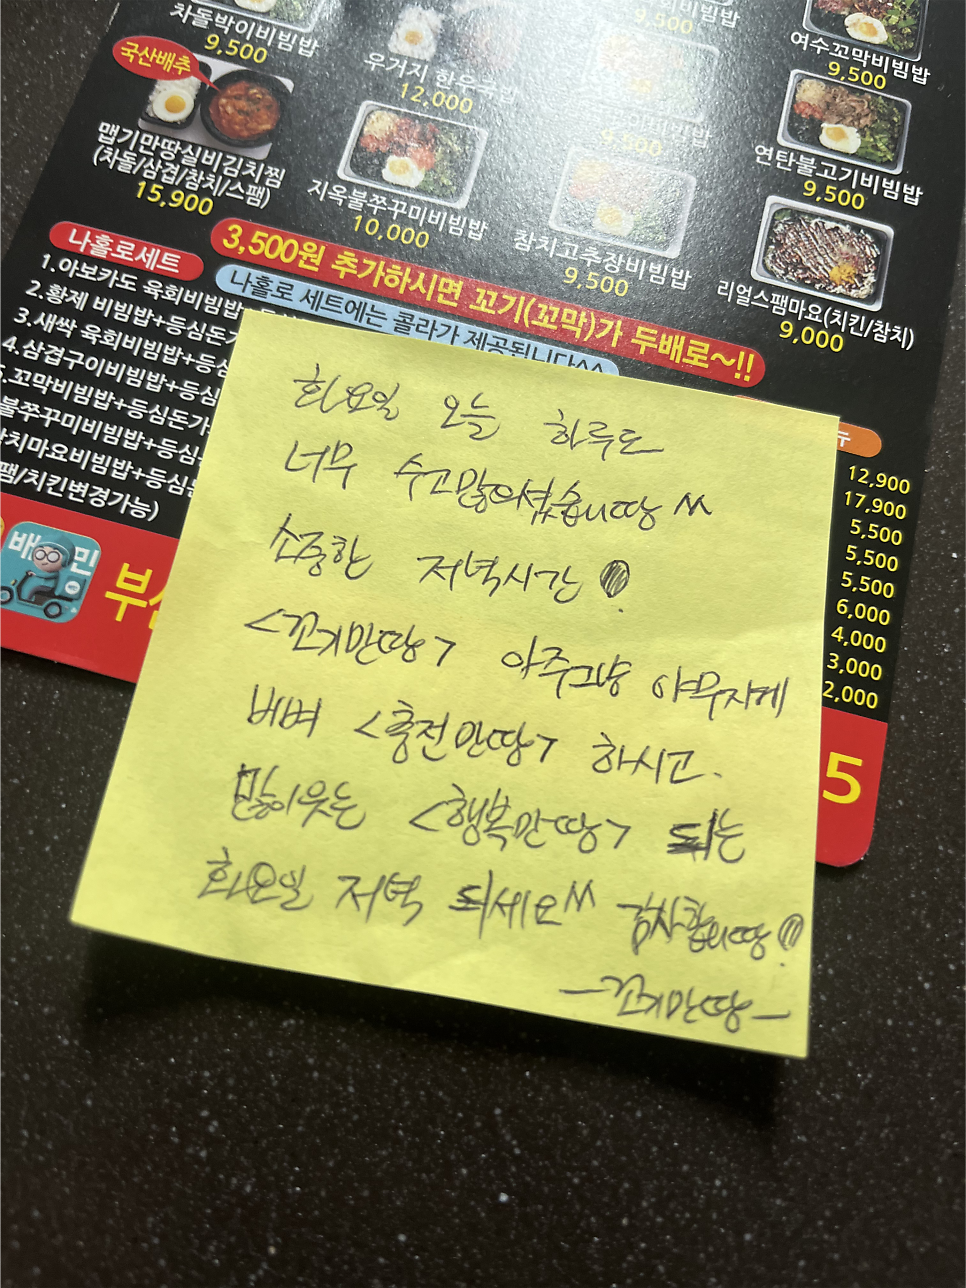 차돌박이비빔밥
9,500
우거지 한우국밥
12,000
9,500
여수꼬막비빔밥
9,500
국산배추
맵기만땅실비김치찜
(차돌/삼겹/참치/스팸)
15,900
지옥불쭈꾸미비빔밥
10,000
참치고추장비빔밥
9,500
연탄불고기비빔밥
9,500
리얼스팸마요(치킨/참치)
9,000
3,500원 추가하시면 꼬기(꼬막)가 두배로~!!
나홀로세트
나홀로 세트에는 콜라가 제공됩니다^^
1.아보카도 육회비빔밥
2.황제 비빔밥+등심돈가
3.새싹 육회비빔밥+등심
4.삼겹구이비빔밥+등심
5.꼬막비빔밥+등심돈가
불쭈꾸미비빔밥+등심
참치마요비빔밥+등심돈
팸/치킨변경가능)
배민
부산
12,900
17,900
5,500
5,500
5,500
6,000
4,000
3,000
2,000
5
화요일 오늘 하루도
너무 수고많으셨습니땅^^
소중한 저녁시간
<꼬기만땅> 아주그냥 야무지게
비벼 <충전만땅> 하시고.
많이웃는 <행복만땅> 되는
화요일 저녁 되세요^^ 감사합니땅
-꼬기만땅-